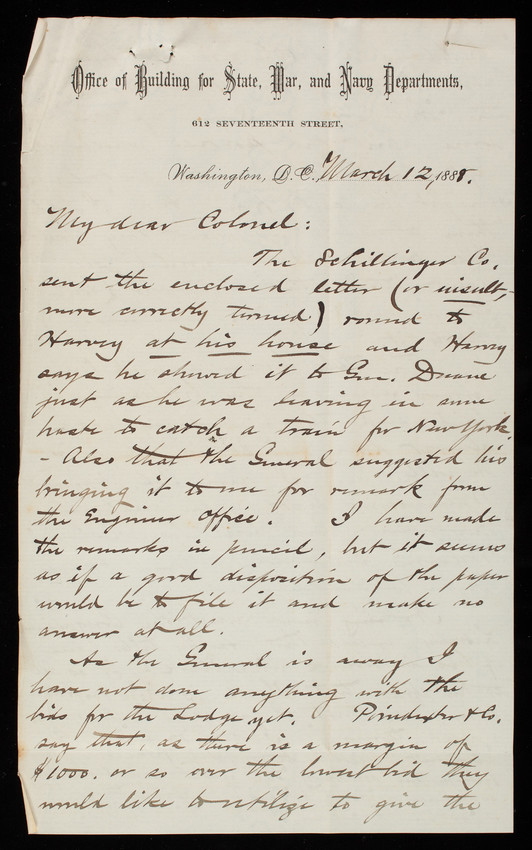 Office of Building for State, War, and Navy Departments,
612 SEVENTEENTH STREET,
Washington, D.C., March 12, 1888.
My dear Colonel:
The Schillinger Co.
sent the enclosed letter (or insult,
more correctly termed) round to
Harvey at his house and Harvey
says he showed it to Gen. Duane
just as he was leaving in some
haste to catch a train for New York.
- Also that the General suggested his
bringing it to me for remark from
the Engineer Office. I have made
the remarks in pencil, but it seems
as if a good disposition of the paper
would be to file it and make no
answer at all.
As the General is away I
have not done anything with the
bids for the Lodge yet. Poindexter & Co.
say that, as there is a margin of
$1000. or so over the lowest bid they
would like to utilize to give the